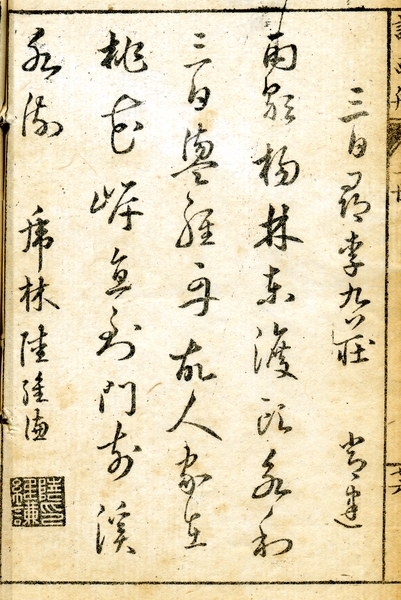 三日尋李九莊 常建
雨歇楊林東渡頭永和
三日盪輕舟故人家在
桃花岸直到門前溪
水流 虎林陸維謙
陸印
維謙